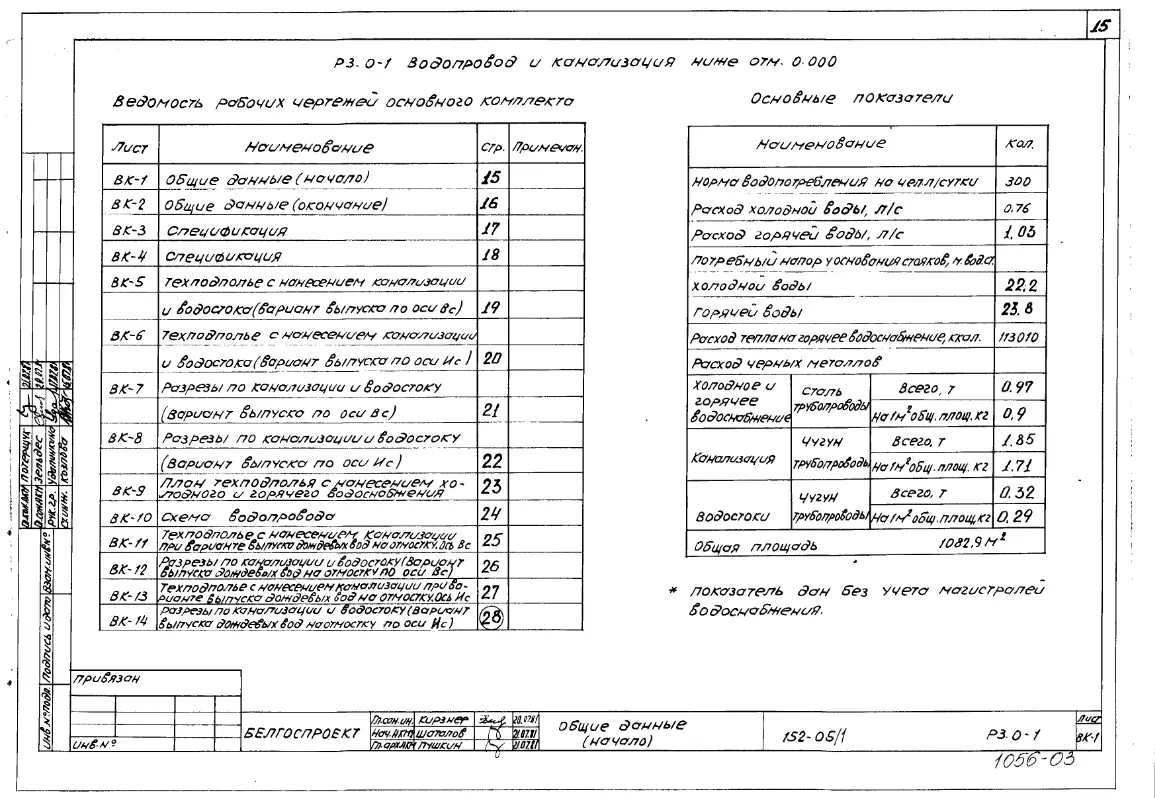 15
Р3.0-1 Водопровод и канализация ниже отм. 0.000
Ведомость рабочих чертежей основного комплекта
Лист Наименование Стр. Примечан.
ВК-1 Общие данные (начало) 15
ВК-2 Общие данные (окончание) 16
ВК-3 Спецификация 17
ВК-4 Спецификация 18
ВК-5 Техподполье с нанесением канализации
и водостока (вариант выпуска по оси Вс) 19
ВК-6 Техподполье с нанесением канализации
и водостока (вариант выпуска по оси Ис) 20
ВК-7 Разрезы по канализации и водостоку
(вариант выпуска по оси Вс) 21
ВК-8 Разрезы по канализации и водостоку
(вариант выпуска по оси Ис) 22
ВК-9 План техподполья с нанесением хо-
лодного и горячего водоснабжения 23
ВК-10 Схема водопровода 24
ВК-11 Техподполье с нанесением канализации
при варианте выпуска дождевых вод на отмостку. Ось Вс 25
ВК-12 Разрезы по канализации и водостоку (Вариант
выпуска дождевых вод на отмостку по оси Вс) 26
ВК-13 Техподполье с нанесением канализации при ва-
рианте выпуска дождевых вод на отмостку. Ось Ис 27
ВК-14 Разрезы по канализации и водостоку (вариант
выпуска дождевых вод на отмостку по оси Ис) 28
Основные показатели
Наименование Кол.
Норма водопотребления на чел. л/сутки 300
Расход холодной воды, л/с 0.76
Расход горячей воды, л/с 1,03
Потребный напор у основания стояков, м.вод.ст.
холодной воды 22,2
горячей воды 23.8
Расход тепла на горячее водоснабжение, ккал. 113010
Расход черных металлов
Холодное и горячее водоснабжение Сталь трубопроводы Всего, т 0.97
На 1м² общ. площ. кг 0,9
Канализация Чугун трубопроводы Всего, т 1.85
На 1м² общ. площ. кг 1.71
Водостоки Чугун трубопроводы Всего, т 0.32
На 1м² общ. площ. кг 0,29
Общая площадь 1082,9 м²
* показатель дан без учета магистралей
водоснабжения.
Потерщук
Зельдес
Рук. гр.
Ст. инж. Козлова
Инв.№ подл. Подпись и дата Взам.инв№
Привязан
Инв.№
БЕЛГОСПРОЕКТ
Гл.сан.ин. Кирзнер 20.0781
Нач.АКМ Шаталов 21.0781
Гл.арх.АКМ Пушкин 21.0781
Общие данные
(начало)
152-05/1
Р3.0-1
Лист
ВК-1
1056-03